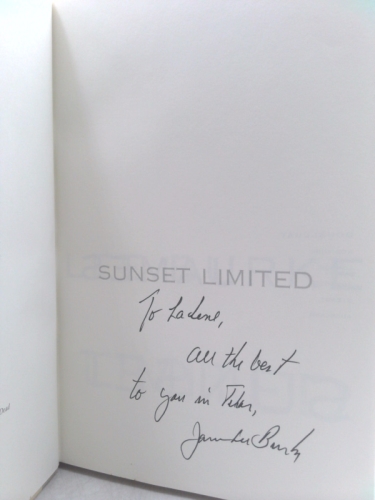 SUNSET LIMITED
To LaDene,
all the best
to you in
James Lee Burke